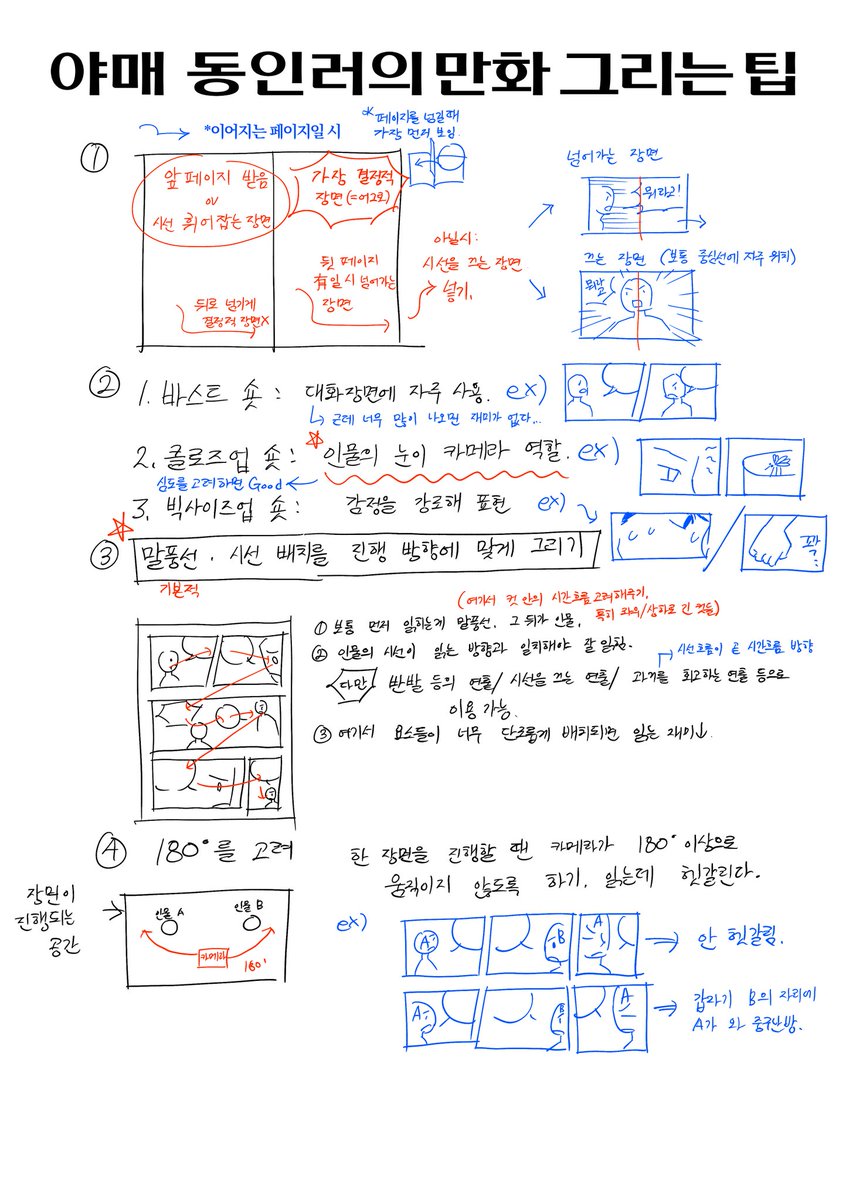 야매 동인러의 만화 그리는 팁
*이어지는 페이지일 시
페이지를 넘길 때
가장 먼저 보임.
①
앞 페이지 받음
or
시선 휘어잡는 장면
가장 결정적
장면(=어그로)
뒤로 넘기게
결정적 장면X
뒷 페이지
有일 시 넘어가는
장면
아닐시:
시선을 끄는 장면
넣기.
넘어가는 장면
뭐라고!
끄는 장면 (보통 중심선에 자주 위치)
②
1. 바스트 숏: 대화장면에 자주 사용. ex)
↳ 근데 너무 많이 나오면 재미가 없다...
2. 클로즈업 숏: 인물의 눈이 카메라 역할. ex)
심도를 고려하면 Good
3. 빅사이즈업 숏: 감정을 강조해 표현 ex)
꽉
③ 말풍선. 시선 배치를 진행 방향에 맞게 그리기
기본적
(여기서 컷 안의 시간흐름 고려해주기,
특히 좌우/상하로 긴 컷들)
① 보통 먼저 읽히는게 말풍선, 그 뒤가 인물.
② 인물의 시선이 읽는 방향과 일치해야 잘 읽힘.
시선흐름이 곧 시간흐름 방향
다만 반발 등의 연출/ 시선을 끄는 연출/ 과거를 회고하는 연출 등으로
이용 가능.
③ 여기서 요소들이 너무 단조롭게 배치되면 읽는 재미↓.
④ 180°를 고려
한 장면을 진행할 땐 카메라가 180° 이상으로
움직이지 않도록 하기. 읽는데 헷갈린다.
장면이
진행되는
공간
인물 A
인물 B
카메라
180°
ex)
A
B
A
→ 안 헷갈림.
A
B
A
→ 갑자기 B의 자리에
A가 와 중구난방.